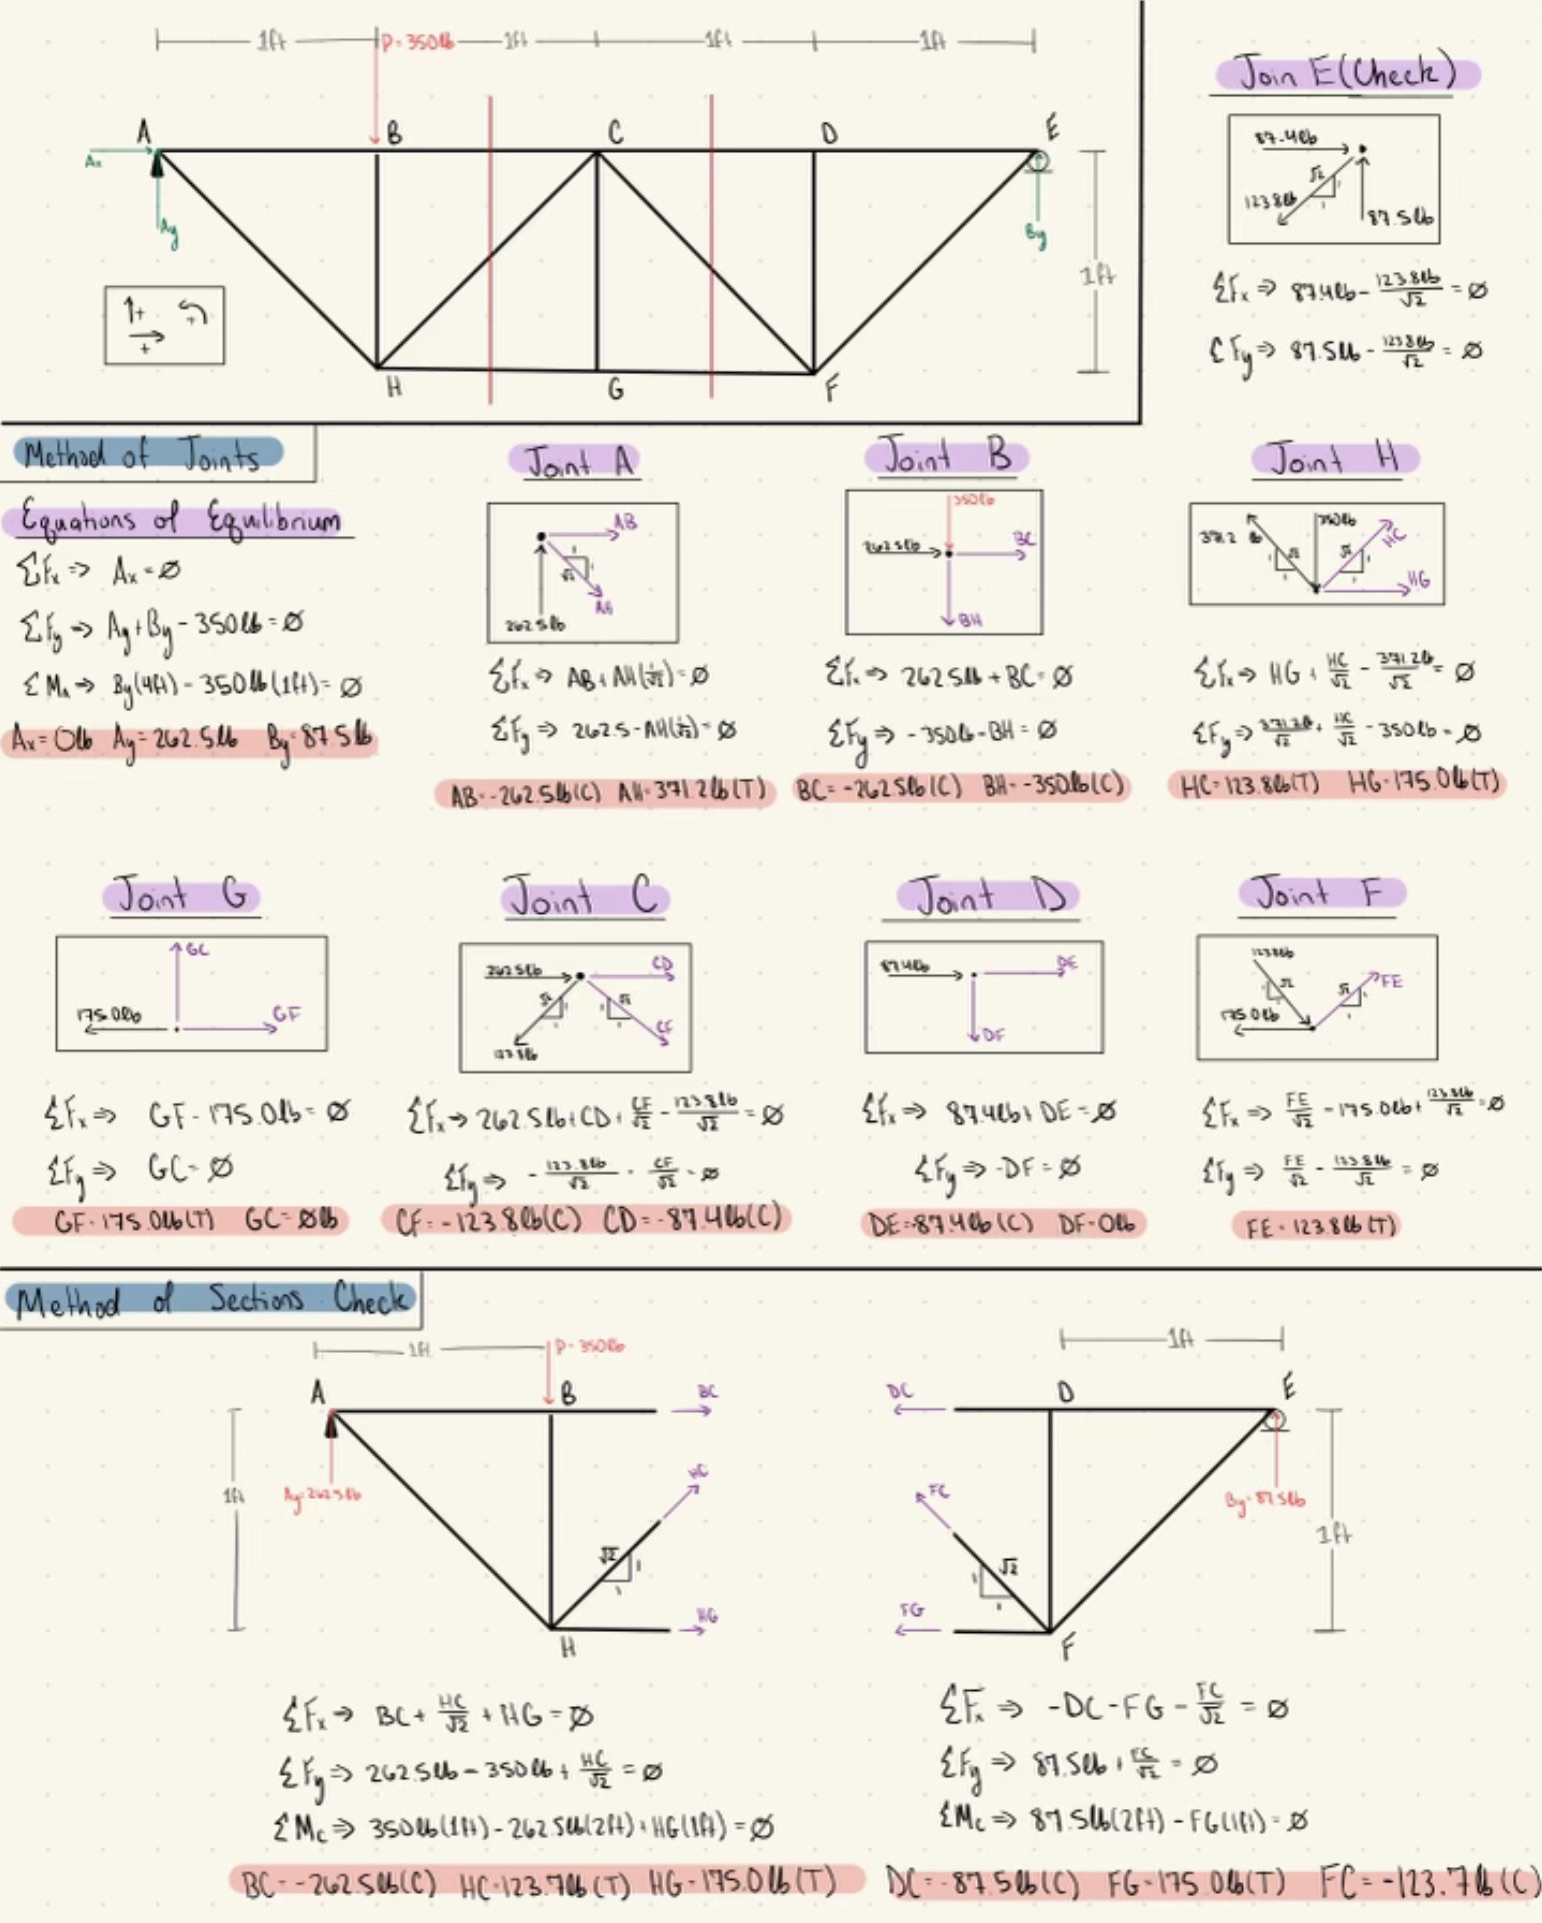 1ft P=350lb 1ft 1ft 1ft
A B C D E
Ax
Ay
By
1ft
+
+
H G F
Join E (Check)
87.4lb
√2
1
1
123.8lb
87.5lb
ΣFx ⇒ 87.4lb - 123.8lb/√2 = ∅
ΣFy ⇒ 87.5lb - 123.8lb/√2 = ∅
Method of Joints
Equations of Equilibrium
ΣFx ⇒ Ax = ∅
ΣFy ⇒ Ay + By - 350lb = ∅
ΣMA ⇒ By(4ft) - 350lb(1ft) = ∅
Ax = 0lb Ay = 262.5lb By = 87.5lb
Joint A
AB
1
1
√2
AH
262.5lb
ΣFx ⇒ AB + AH(1/√2) = ∅
ΣFy ⇒ 262.5 - AH(1/√2) = ∅
AB = -262.5lb(C) AH = 371.2lb(T)
Joint B
350lb
262.5lb
BC
BH
ΣFx ⇒ 262.5lb + BC = ∅
ΣFy ⇒ -350lb - BH = ∅
BC = -262.5lb(C) BH = -350lb(C)
Joint H
371.2 lb
350lb
HC
1
√2
1
√2
1
1
HG
ΣFx ⇒ HG + HC/√2 - 371.2lb/√2 = ∅
ΣFy ⇒ 371.2lb/√2 + HC/√2 - 350lb = ∅
HC = 123.8lb(T) HG = 175.0lb(T)
Joint G
GC
175.0lb
GF
ΣFx ⇒ GF - 175.0lb = ∅
ΣFy ⇒ GC = ∅
GF = 175.0lb(T) GC = ∅lb
Joint C
262.5lb
CD
√2
1
1
√2
1
1
CF
123.8lb
ΣFx ⇒ 262.5lb + CD + CF/√2 - 123.8lb/√2 = ∅
ΣFy ⇒ - 123.8lb/√2 - CF/√2 = ∅
CF = -123.8lb(C) CD = -87.4lb(C)
Joint D
87.4lb
DE
DF
ΣFx ⇒ 87.4lb + DE = ∅
ΣFy ⇒ -DF = ∅
DE = -87.4lb (C) DF = 0lb
Joint F
123.8lb
1
√2
1
√2
1
1
FE
175.0lb
ΣFx ⇒ FE/√2 - 175.0lb + 123.8lb/√2 = ∅
ΣFy ⇒ FE/√2 - 123.8lb/√2 = ∅
FE = 123.8lb (T)
Method of Sections Check
1ft P=350lb
A B BC
1ft
Ay=262.5lb
HC
√2
1
1
HG
H
ΣFx ⇒ BC + HC/√2 + HG = ∅
ΣFy ⇒ 262.5lb - 350lb + HC/√2 = ∅
ΣMc ⇒ 350lb(1ft) - 262.5lb(2ft) + HG(1ft) = ∅
BC = -262.5lb(C) HC = 123.7lb (T) HG = 175.0lb (T)
1ft
DC D E
FC
By=87.5lb
1ft
√2
1
1
FG
F
ΣFx ⇒ -DC - FG - FC/√2 = ∅
ΣFy ⇒ 87.5lb + FC/√2 = ∅
ΣMc ⇒ 87.5lb(2ft) - FG(1ft) = ∅
DC = -87.5lb(C) FG = 175.0lb(T) FC = -123.7lb (C)